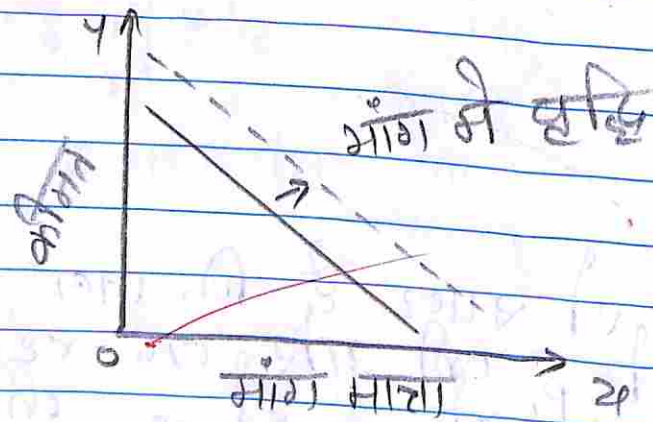 y
मांग मे वृद्धि
कीमत
0
मांग मात्रा
x